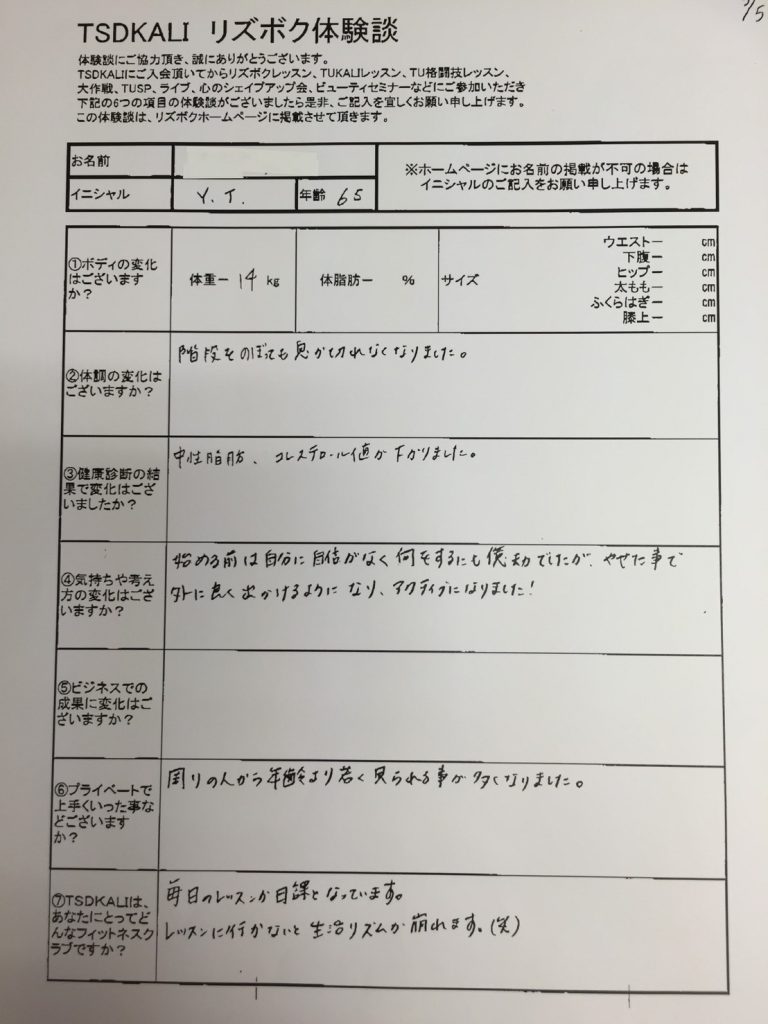 1/5
TSDKALI リズボク体験談
体験談にご協力頂き、誠にありがとうございます。
TSDKALIにご入会頂いてからリズボクレッスン、TUKALIレッスン、TU格闘技レッスン、
大作戦、TUSP、ライブ、心のシェイプアップ会、ビューティセミナーなどにご参加いただき
下記の6つの項目の体験談がございましたら是非、ご記入を宜しくお願い申し上げます。
この体験談は、リズボクホームページに掲載させて頂きます。
お名前
※ホームページにお名前の掲載が不可の場合は
イニシャルのご記入をお願い申し上げます。
イニシャル Y.T. 年齢 65
①ボディの変化
はございます
か?
体重ー 14 kg 体脂肪ー % サイズ
ウエストー cm
下腹ー cm
ヒップー cm
太ももー cm
ふくらはぎー cm
膝上ー cm
②体調の変化は
ございますか?
階段をのぼっても息が切れなくなりました。
③健康診断の結
果で変化はござ
いましたか?
中性脂肪、コレステロール値が下がりました。
④気持ちや考え
方の変化はござ
いますか?
始める前は自分に自信がなく何をするにも億劫でしたが、やせた事で
外に良く出かけるようになり、アクティブになりました!
⑤ビジネスでの
成果に変化はご
ざいますか?
⑥プライベートで
上手くいった事な
どございます
か?
周りの人から年齢より若く見られる事が多くなりました。
⑦TSDKALIは、
あなたにとってど
んなフィットネスク
ラブですか?
毎日のレッスンが日課となっています。
レッスンに行かないと生活リズムが崩れます。(笑)